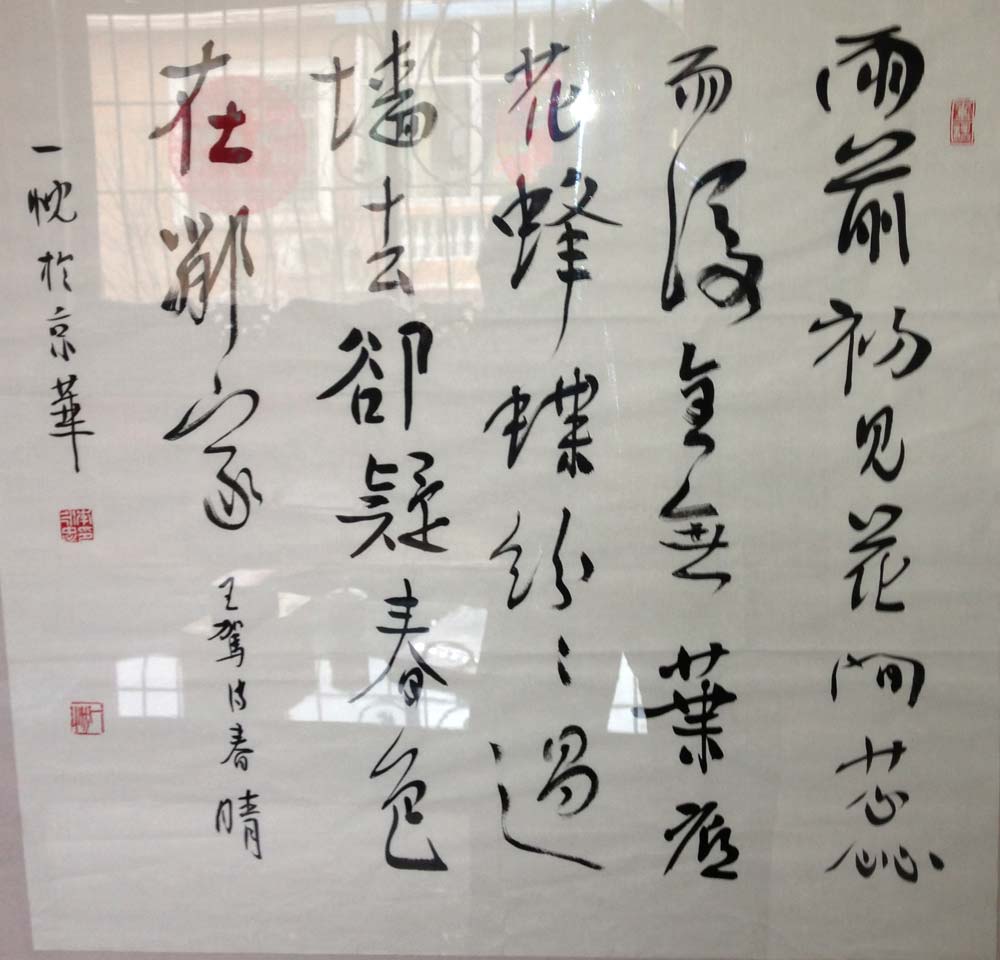 雨前初見花间蕊
雨後全無葉底
花蜂蝶紛〻過
墙去卻疑春色
在鄰家
王駕詩春晴
一於京華